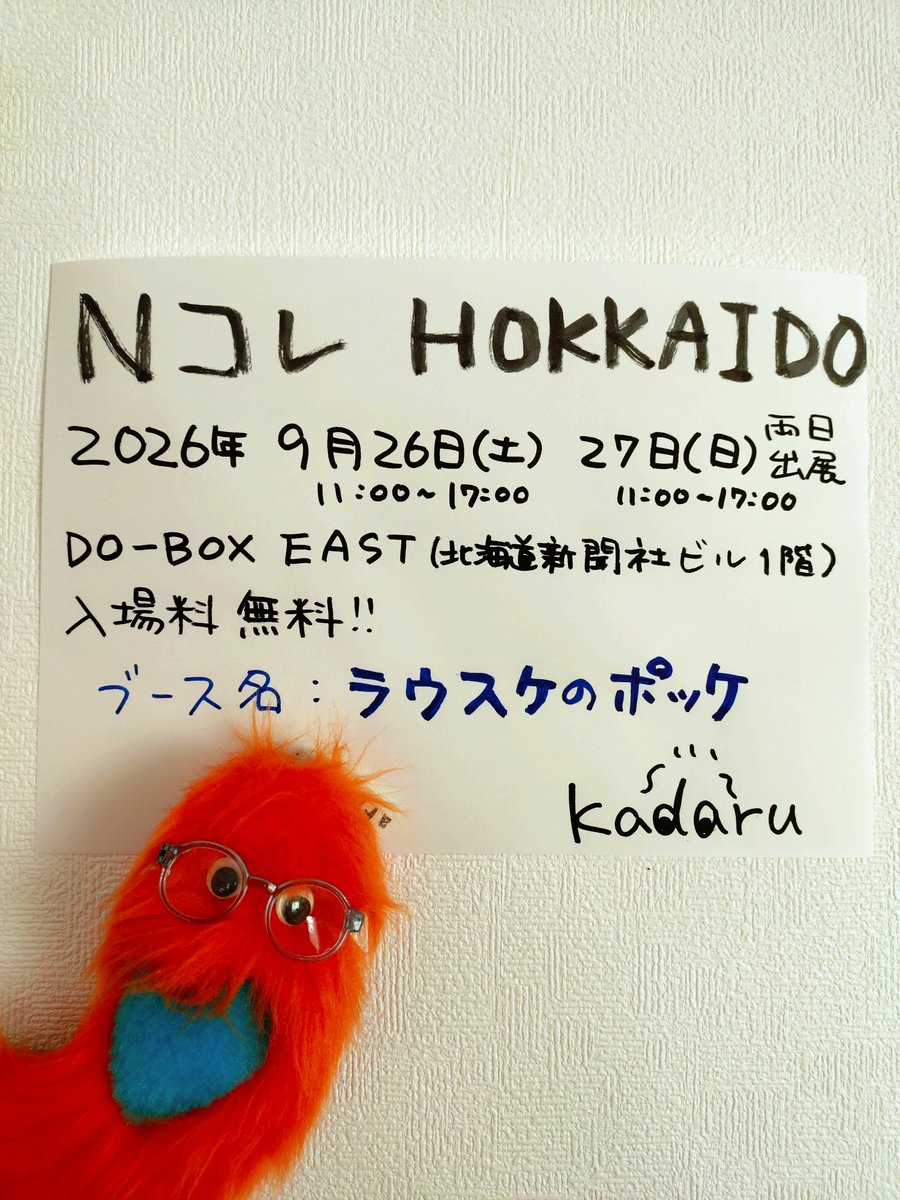 Nコレ HOKKAIDO
2026年 9月26日(土) 27日(日) 両日出展
11:00~17:00 11:00~17:00
DO-BOX EAST (北海道新聞社ビル1階)
入場料 無料!!
ブース名:ラウスケのポッケ
kadaru